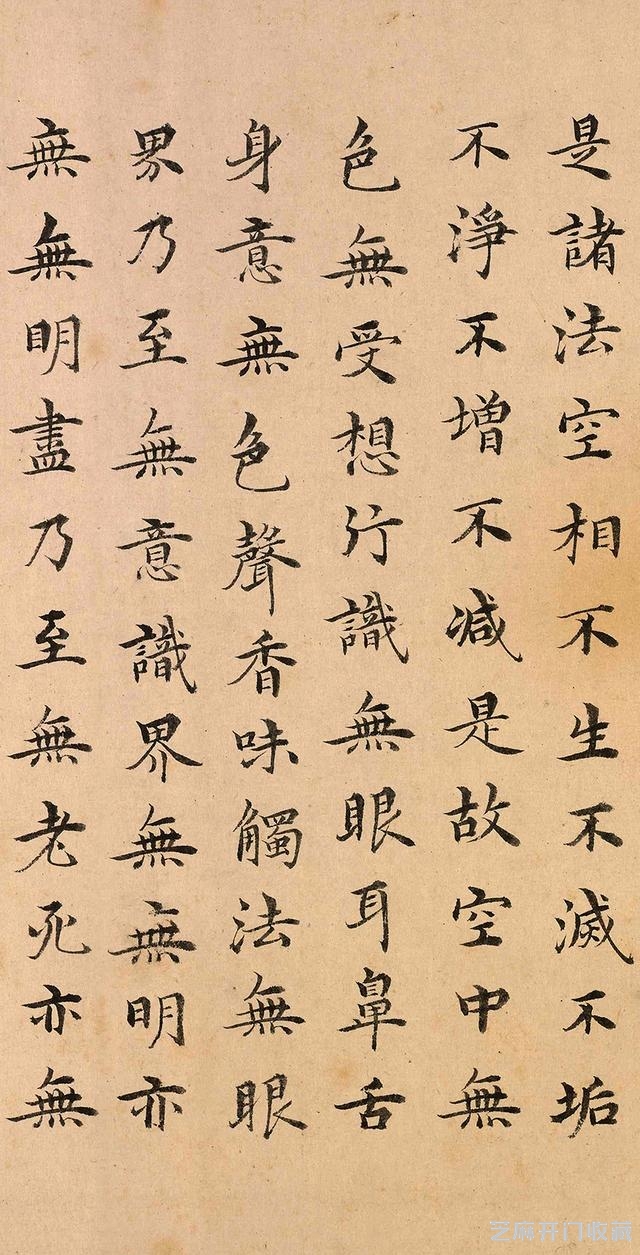 是諸法空相不生不滅不垢
不淨不增不減是故空中無
色無受想行識無眼耳鼻舌
身意無色聲香味觸法無眼
界乃至無意識界無無明亦
無無明盡乃至無老死亦無
芝麻开门收藏